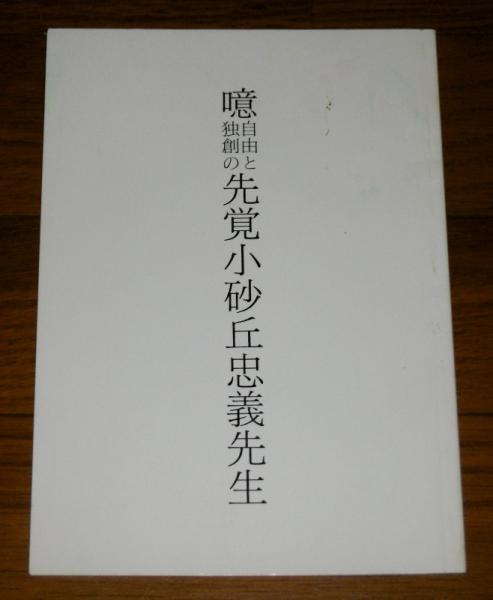 噫自由と独創の先覚小砂丘忠義先生